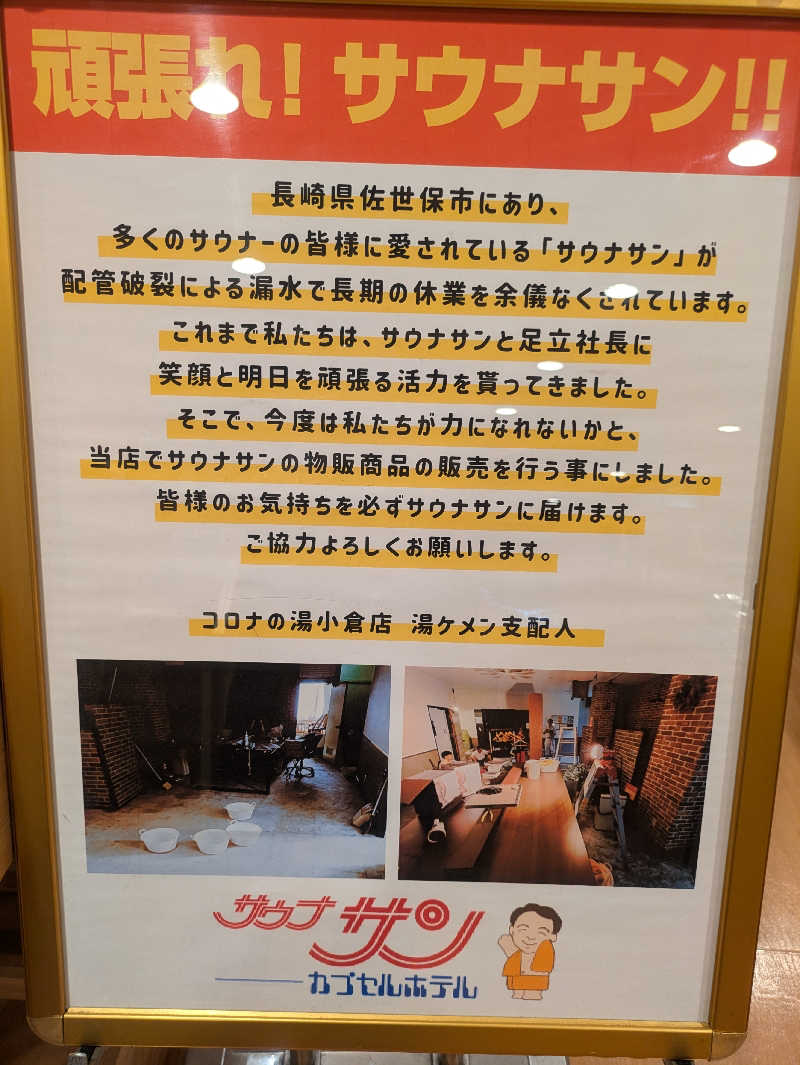 頑張れ!サウナサン!!
長崎県佐世保市にあり、
多くのサウナーの皆様に愛されている「サウナサン」が
配管破裂による漏水で長期の休業を余儀なくされています。
これまで私たちは、サウナサンと足立社長に
笑顔と明日を頑張る活力を貰ってきました。
そこで、今度は私たちが力になれないかと、
当店でサウナサンの物販商品の販売を行う事にしました。
皆様のお気持ちを必ずサウナサンに届けます。
ご協力よろしくお願いします。
コロナの湯小倉店 湯ケメン支配人
サウナ サン
カプセルホテル